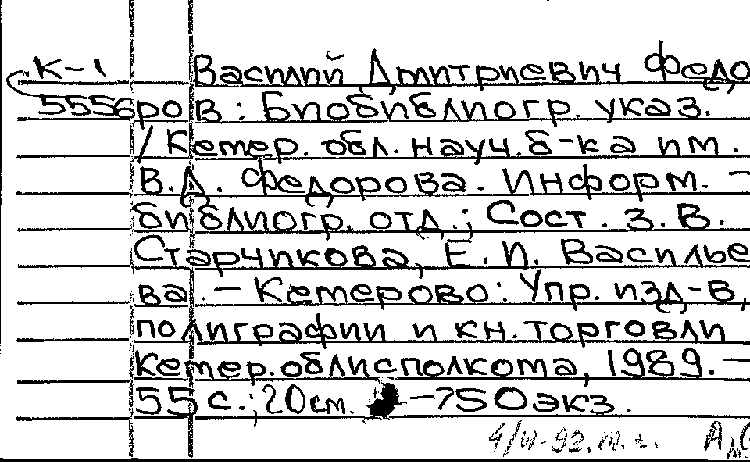 К-1 Василий Дмитриевич Федо
5556 ров: Биобиблиогр. указ.
/ Кемер. обл. науч. б-ка им.
В.Д. Федорова. Информ. -
библиогр. отд.; Сост. З.В.
Старчикова, Е.П. Василье
ва. — Кемерово: Упр. изд-в,
полиграфии и кн. торговли
Кемер. облисполкома, 1989. —
55 с.; 20 см. — 750 экз.